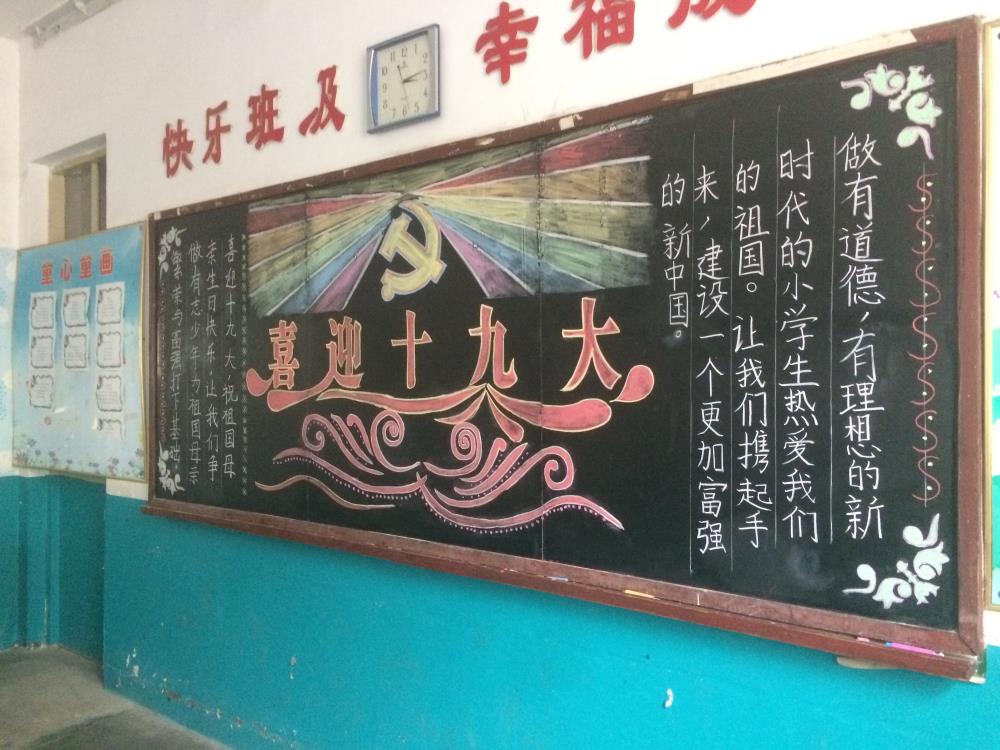 快乐班及 幸福成
童心童画
做有道德,有理想的新
时代的小学生热爱我们
的祖国。让我们携起手
来,建设一个更加富强
的新中国。
喜迎十九大
喜迎十九大祝祖国母
亲生日快乐,让我们争
做有志少年为祖国母亲
繁荣与富强打下基础。